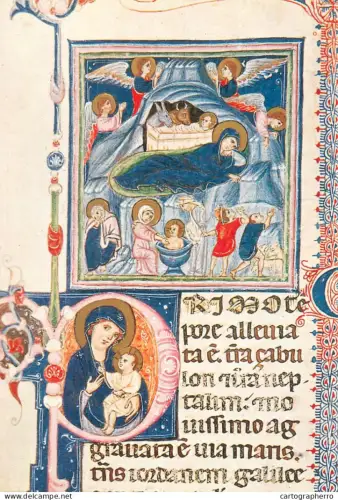 PRIMO tē
pore alleuia
ta ē. t̄ra çabu
lon t̄ra nep
talim: no
uissimo ag
grauata ē uia maris.
t̄ns iordanem galilee
cartographerro